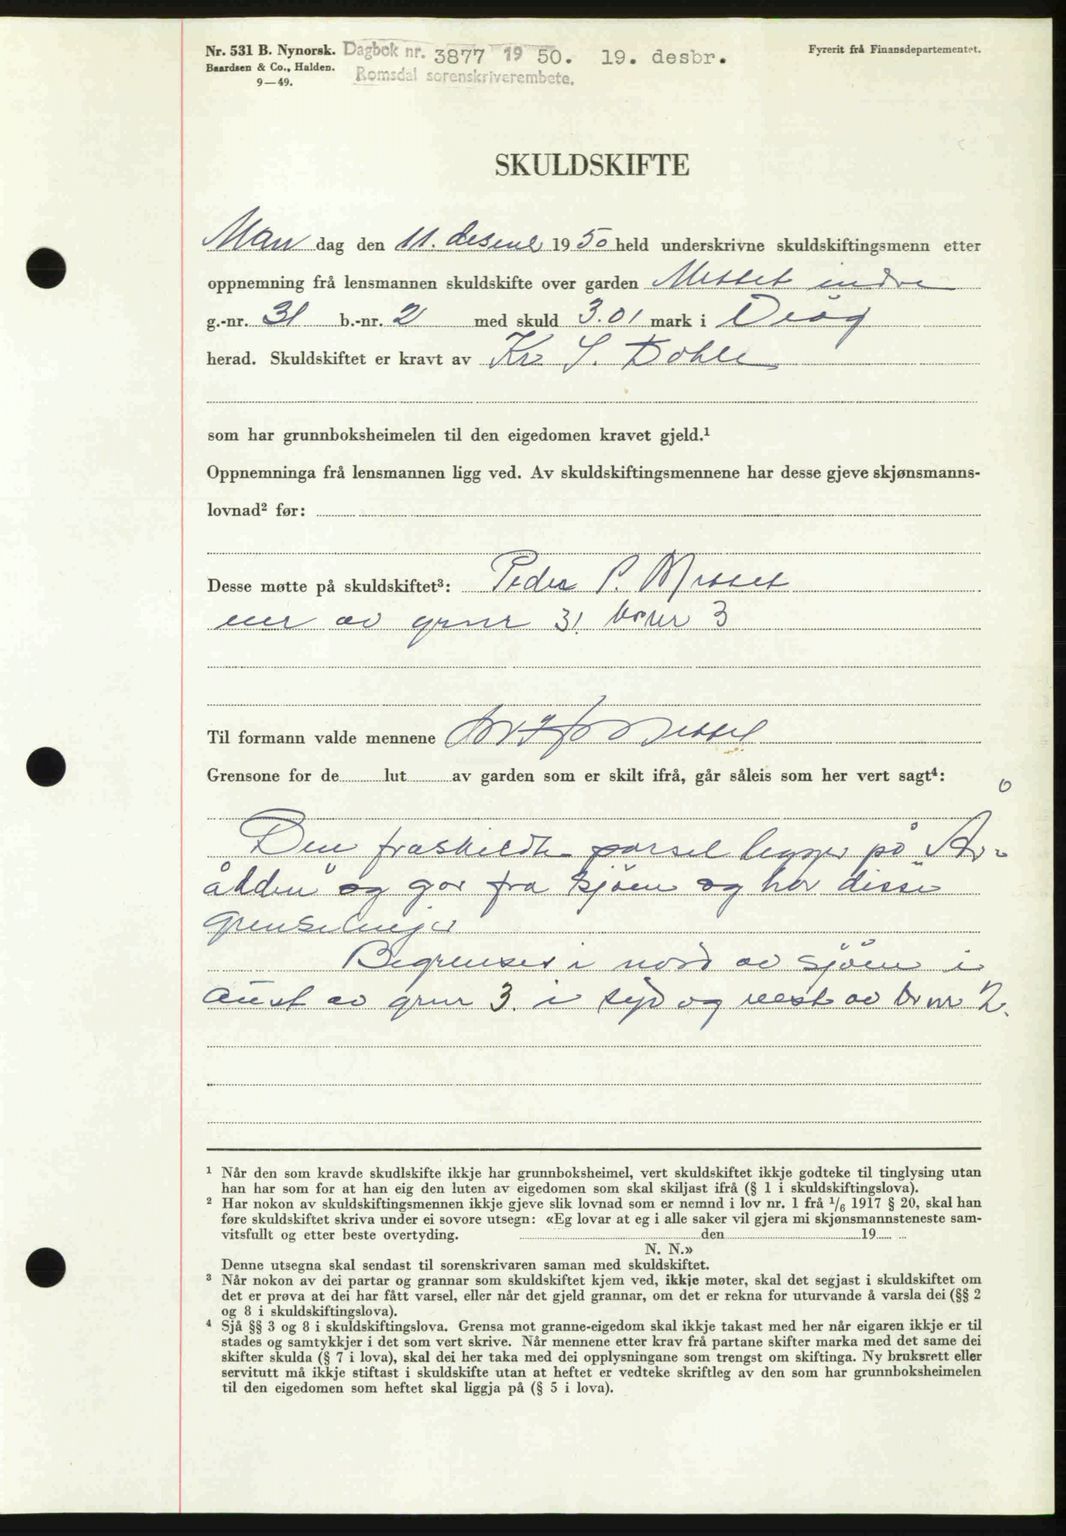 Nr. 531 B. Nynorsk. Dagbok nr. 3877 1950. 19. desbr. Fyrerit frå Finansdepartementet.
Baardsen & Co., Halden. Romsdal sorenskriverembete.
9—49.
SKULDSKIFTE
Man dag den 11. desem 1950 held underskrivne skuldskiftingsmenn etter
oppnemning frå lensmannen skuldskifte over garden Misset indre
g.-nr. 31 b.-nr. 2 med skuld 3.01 mark i
herad. Skuldskiftet er kravt av Kr. S. Dahle
som har grunnboksheimelen til den eigedomen kravet gjeld.¹
Oppnemninga frå lensmannen ligg ved. Av skuldskiftingsmennene har desse gjeve skjønsmanns-
lovnad² før:
Desse møtte på skuldskiftet³: Peder P. Misset
eier av grnr 31 brnr 3
Til formann valde mennene Misset
Grensone for de lut av garden som er skilt ifrå, går såleis som her vert sagt⁴:
Den fraskildte parsel ligger på
og går fra sjöen og har disse
grenselinjer
Begrenses i nord av sjöen i
Aust av grnr 3. i syd og vest av br nr 2.
¹ Når den som kravde skudlskifte ikkje har grunnboksheimel, vert skuldskiftet ikkje godteke til tinglysing utan
han har som for at han eig den luten av eigedomen som skal skiljast ifrå (§ 1 i skuldskiftingslova).
² Har nokon av skuldskiftingsmennen ikkje gjeve slik lovnad som er nemnd i lov nr. 1 frå 1/6 1917 § 20, skal han
føre skuldskiftet skriva under ei sovore utsegn: «Eg lovar at eg i alle saker vil gjera mi skjønsmannsteneste sam-
vitsfullt og etter beste overtyding. den 19
N. N.»
Denne utsegna skal sendast til sorenskrivaren saman med skuldskiftet.
³ Når nokon av dei partar og grannar som skuldskiftet kjem ved, ikkje møter, skal det segjast i skuldskiftet om
det er prøva at dei har fått varsel, eller når det gjeld grannar, om det er rekna for uturvande å varsla dei (§§ 2
og 8 i skuldskiftingslova).
⁴ Sjå §§ 3 og 8 i skuldskiftingslova. Grensa mot granne-eigedom skal ikkje takast med her når eigaren ikkje er til
stades og samtykkjer i det som vert skrive. Når mennene etter krav frå partane skifter marka med det same dei
skifter skulda (§ 7 i lova), skal dei her taka med dei opplysningane som trengst om skiftinga. Ny bruksrett eller
servitutt må ikkje stiftast i skuldskifte utan at heftet er vedteke skriftleg av den som har grunnboksheimelen
til den eigedomen som heftet skal liggja på (§ 5 i lova).